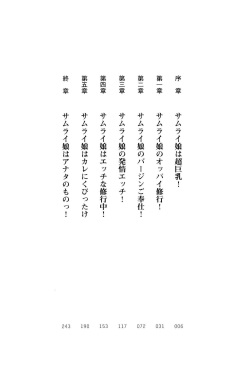 序章 サムライ娘は超巨乳! 006
第一章 サムライ娘のオッパイ修行! 031
第二章 サムライ娘のバージンご奉仕! 072
第三章 サムライ娘の発情エッチ! 117
第四章 サムライ娘はエッチな修行中! 153
第五章 サムライ娘はカレにくびったけ 190
終章 サムライ娘はアナタのものっ! 243